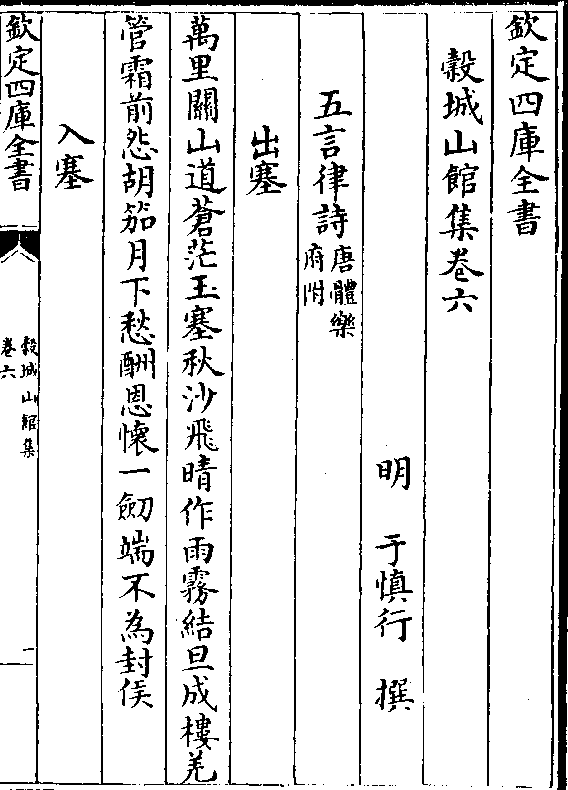 欽定四庫全書
糓城山館集卷六
明　于慎行　撰
五言律詩唐體樂府附
出塞
萬里關山道蒼茫玉塞秋沙飛晴作雨霧結旦成樓羌
管霜前怨胡笳月下愁酬恩懷一劒端不為封侯
入塞
欽定四庫全書
糓城山館集
卷六
一